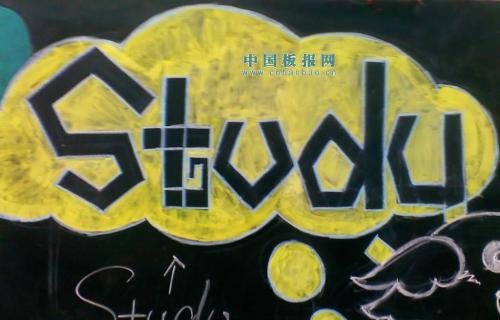 中国板报网
www.cnbanbao.cn
Study
Study